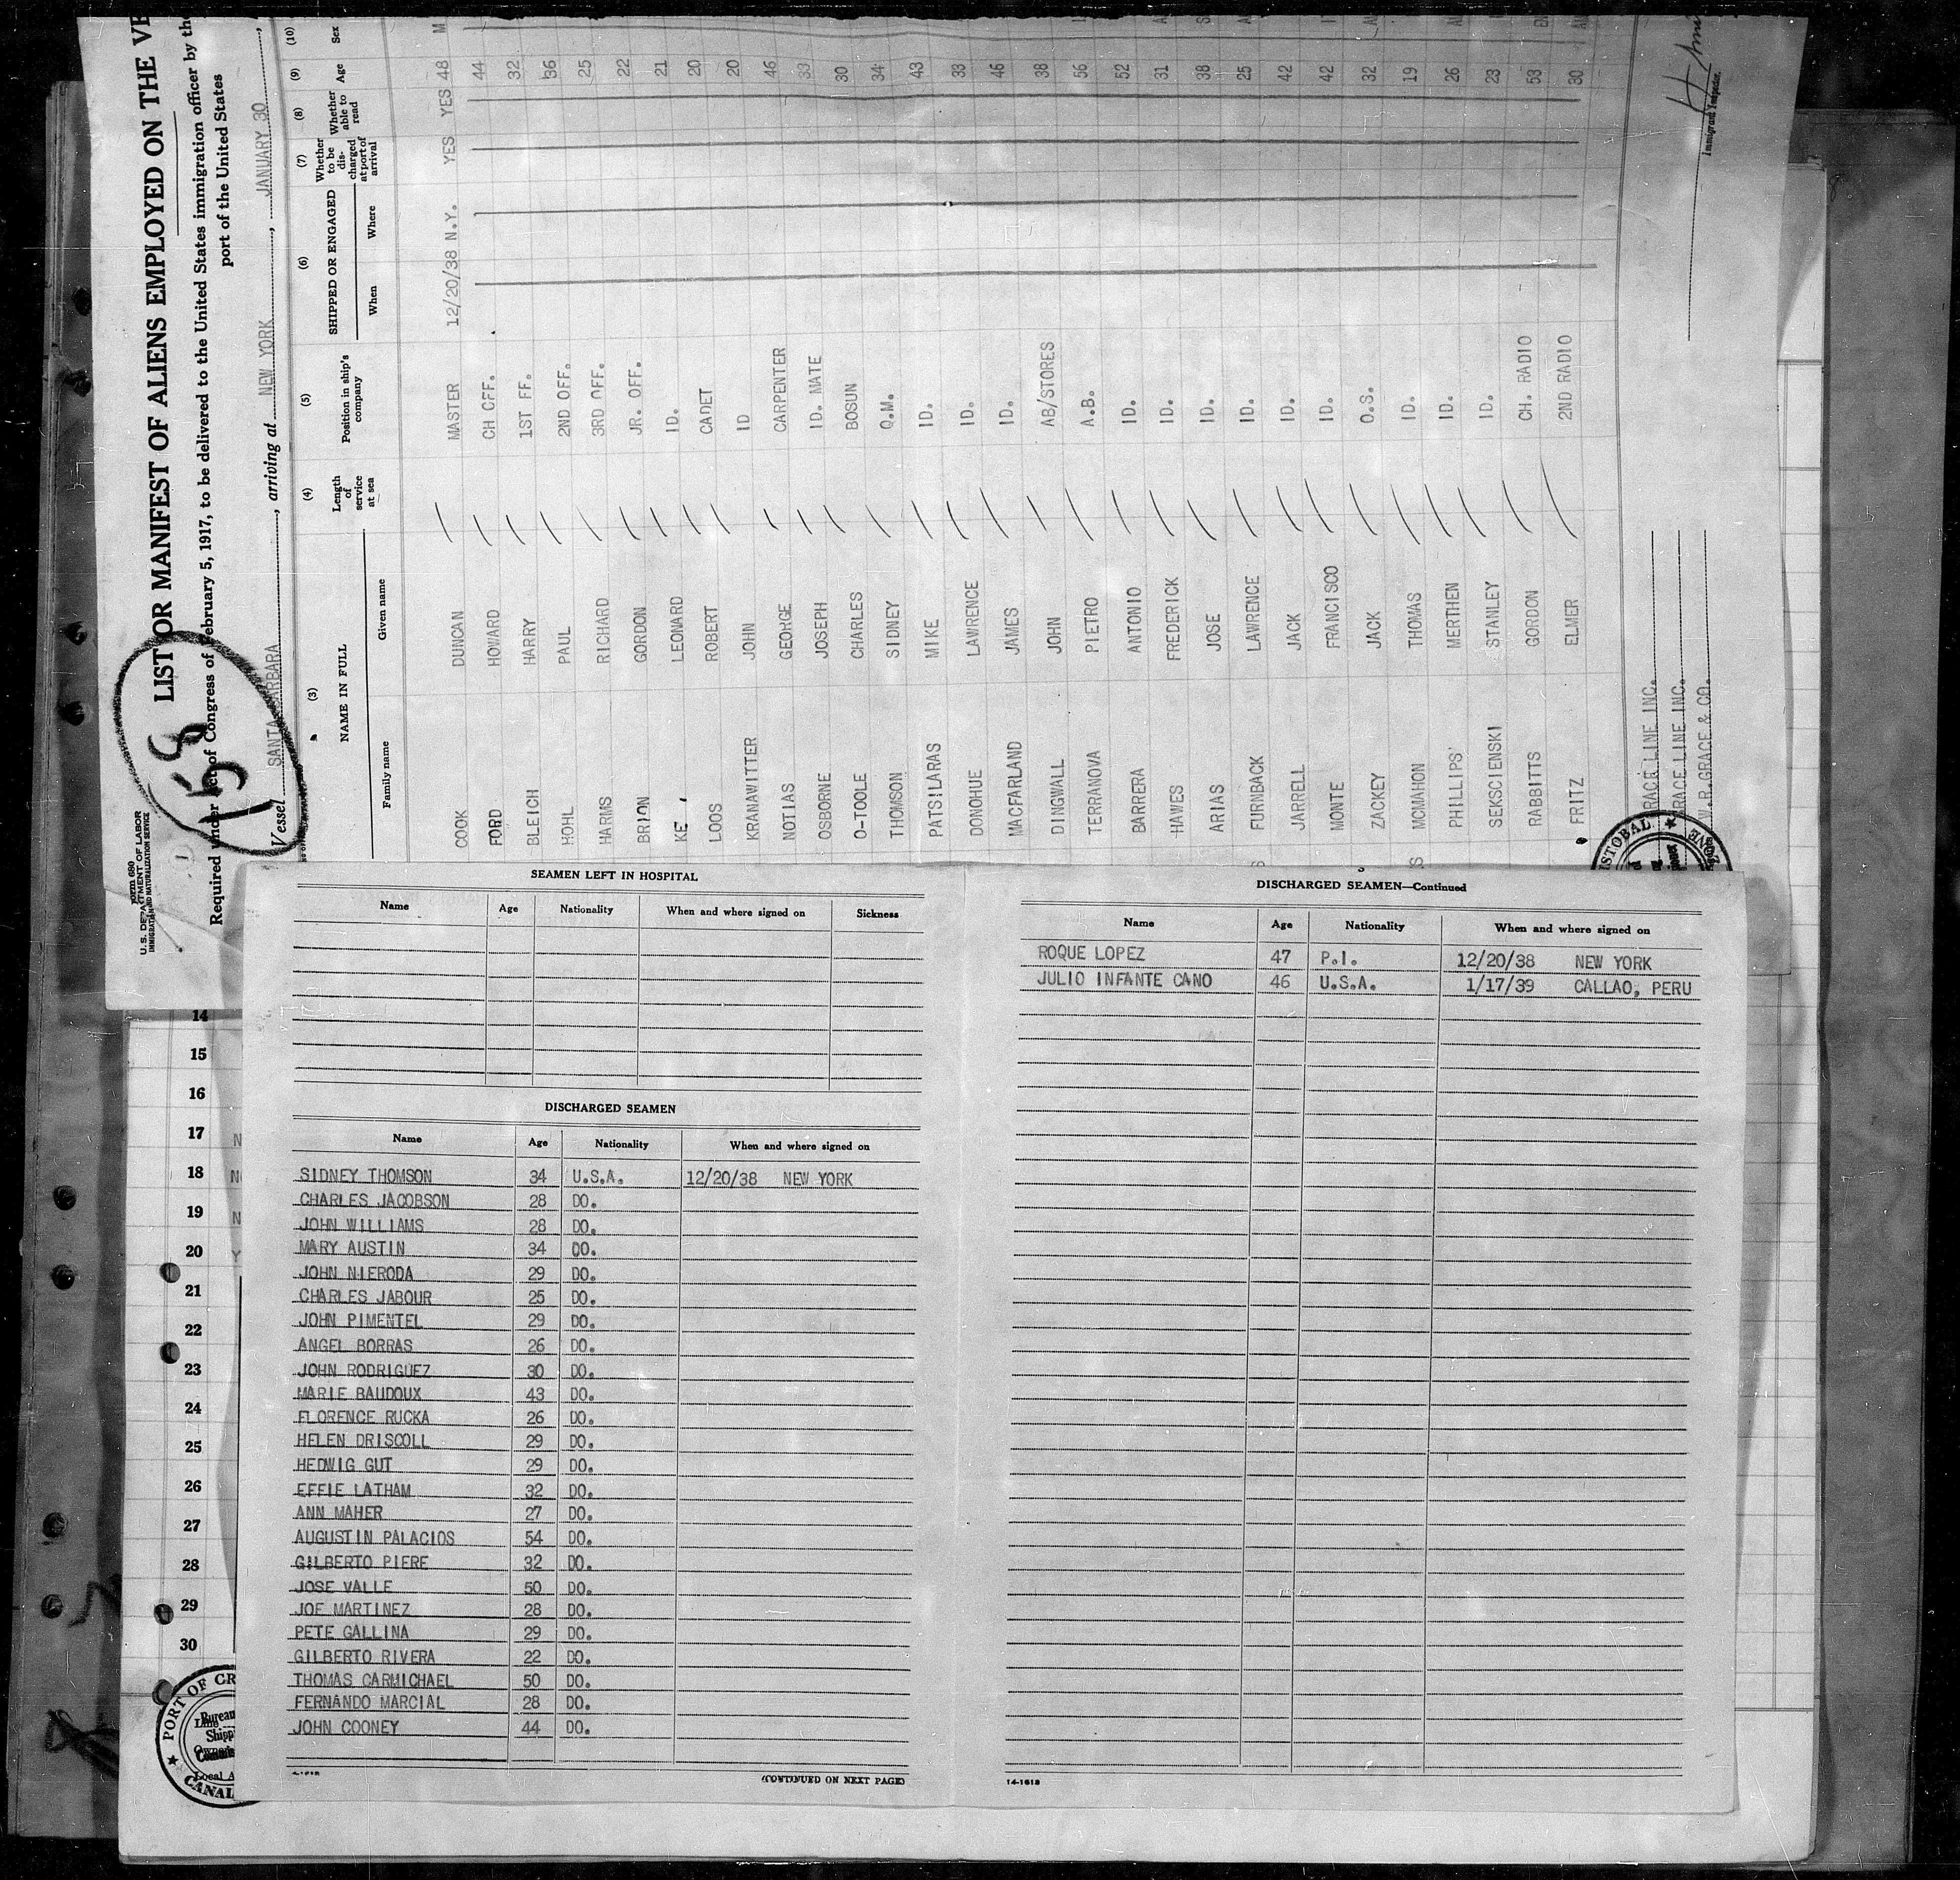 Form 680
U. S. DEPARTMENT OF LABOR
IMMIGRATION AND NATURALIZATION SERVICE
158
LIST OR MANIFEST OF ALIENS EMPLOYED ON THE VE
Required under Act of Congress of February 5, 1917, to be delivered to the United States immigration officer by the
port of the United States
Vessel SANTA BARBARA, arriving at NEW YORK, JANUARY 30,
(3) (4) (5) (6) (7) (8) (9) (10)
NAME IN FULL Length of service at sea Position in ship's company SHIPPED OR ENGAGED Whether to be discharged at port of arrival Whether able to read Age Sex
Family name Given name When Where
COOK DUNCAN MASTER 12/20/38 N.Y. YES YES 48 M
FORD HOWARD CH OFF. 44
BLEICH HARRY 1ST FF. 32
HOHL PAUL 2ND OFF. 36
HARMS RICHARD 3RD OFF. 25
BRION GORDON JR. OFF. 22
KE LEONARD ID. 21
LOOS ROBERT CADET 20
KRANAWITTER JOHN ID 20
NOTIAS GEORGE CARPENTER 46
OSBORNE JOSEPH ID. MATE 33
O-TOOLE CHARLES BOSUN 30
THOMSON SIDNEY Q.M. 34
PATSILARAS MIKE ID. 43
DONOHUE LAWRENCE ID. 33
MACFARLAND JAMES ID. 46
DINGWALL JOHN AB/STORES 38
TERRANOVA PIETRO A.B. 56
BARRERA ANTONIO ID. 52
HAWES FREDERICK ID. 31
ARIAS JOSE ID. 38
FURNBACK LAWRENCE ID. 25
JARRELL JACK ID. 42
MONTE FRANCISCO ID. 42
ZACKEY JACK O.S. 32
MCMAHON THOMAS ID. 19
PHILLIPS MERTHEN ID. 26
SEKSCIENSKI STANLEY ID. 23
RABBITTS GORDON CH. RADIO 53
FRITZ ELMER 2ND RADIO 30
GRACE LINE INC.
GRACE LINE INC.
W.R.GRACE & CO.
Immigrant Inspector.
SEAMEN LEFT IN HOSPITAL
Name Age Nationality When and where signed on Sickness
DISCHARGED SEAMEN
Name Age Nationality When and where signed on
SIDNEY THOMSON 34 U.S.A. 12/20/38 NEW YORK
CHARLES JACOBSON 28 DO.
JOHN WILLIAMS 28 DO.
MARY AUSTIN 34 DO.
JOHN NIERODA 29 DO.
CHARLES JABOUR 25 DO.
JOHN PIMENTEL 29 DO.
ANGEL BORRAS 26 DO.
JOHN RODRIGUEZ 30 DO.
MARIE BAUDOUX 43 DO.
FLORENCE RUCKA 26 DO.
HELEN DRISCOLL 29 DO.
HEDWIG GUT 29 DO.
EFFIE LATHAM 32 DO.
ANN MAHER 27 DO.
AUGUSTIN PALACIOS 54 DO.
GILBERTO PIERE 32 DO.
JOSE VALLE 50 DO.
JOE MARTINEZ 28 DO.
PETE GALLINA 29 DO.
GILBERTO RIVERA 22 DO.
THOMAS CARMICHAEL 50 DO.
FERNANDO MARCIAL 28 DO.
JOHN COONEY 44 DO.
(CONTINUED ON NEXT PAGE)
DISCHARGED SEAMEN—Continued
Name Age Nationality When and where signed on
ROQUE LOPEZ 47 P.I. 12/20/38 NEW YORK
JULIO INFANTE CANO 46 U.S.A. 1/17/39 CALLAO, PERU
14-1618
14
15
16
17 N
18 N
19 N
20 Y
21
22
23
24
25
26
27
28
29
30
PORT OF CR
Bureau
Shipp
Local A
CANAL